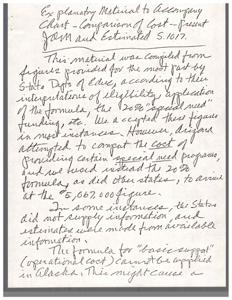 Explanatory Material to Accompany
Chart - Comparison of Cost - Present
JOM and Estimated S.1017.
This material was compiled from
figures provided for the most part by
State Dept's of Educ, according to their
interpretations of eligibility, application
of the formula, the 20% "special need"
funding, etc. We accepted these figures
in most instances. However,
attempted to comput the cost of
providing certain special need programs,
and we used instead the 20%
formula, as did other states, to arrive
at the $5,067,000 figure.
In some instances, the States
did not supply information, and
estimates were made from available
information.
The formula for "basic support"
(operational cost) cannot be applied
in Alaska. This might cause a